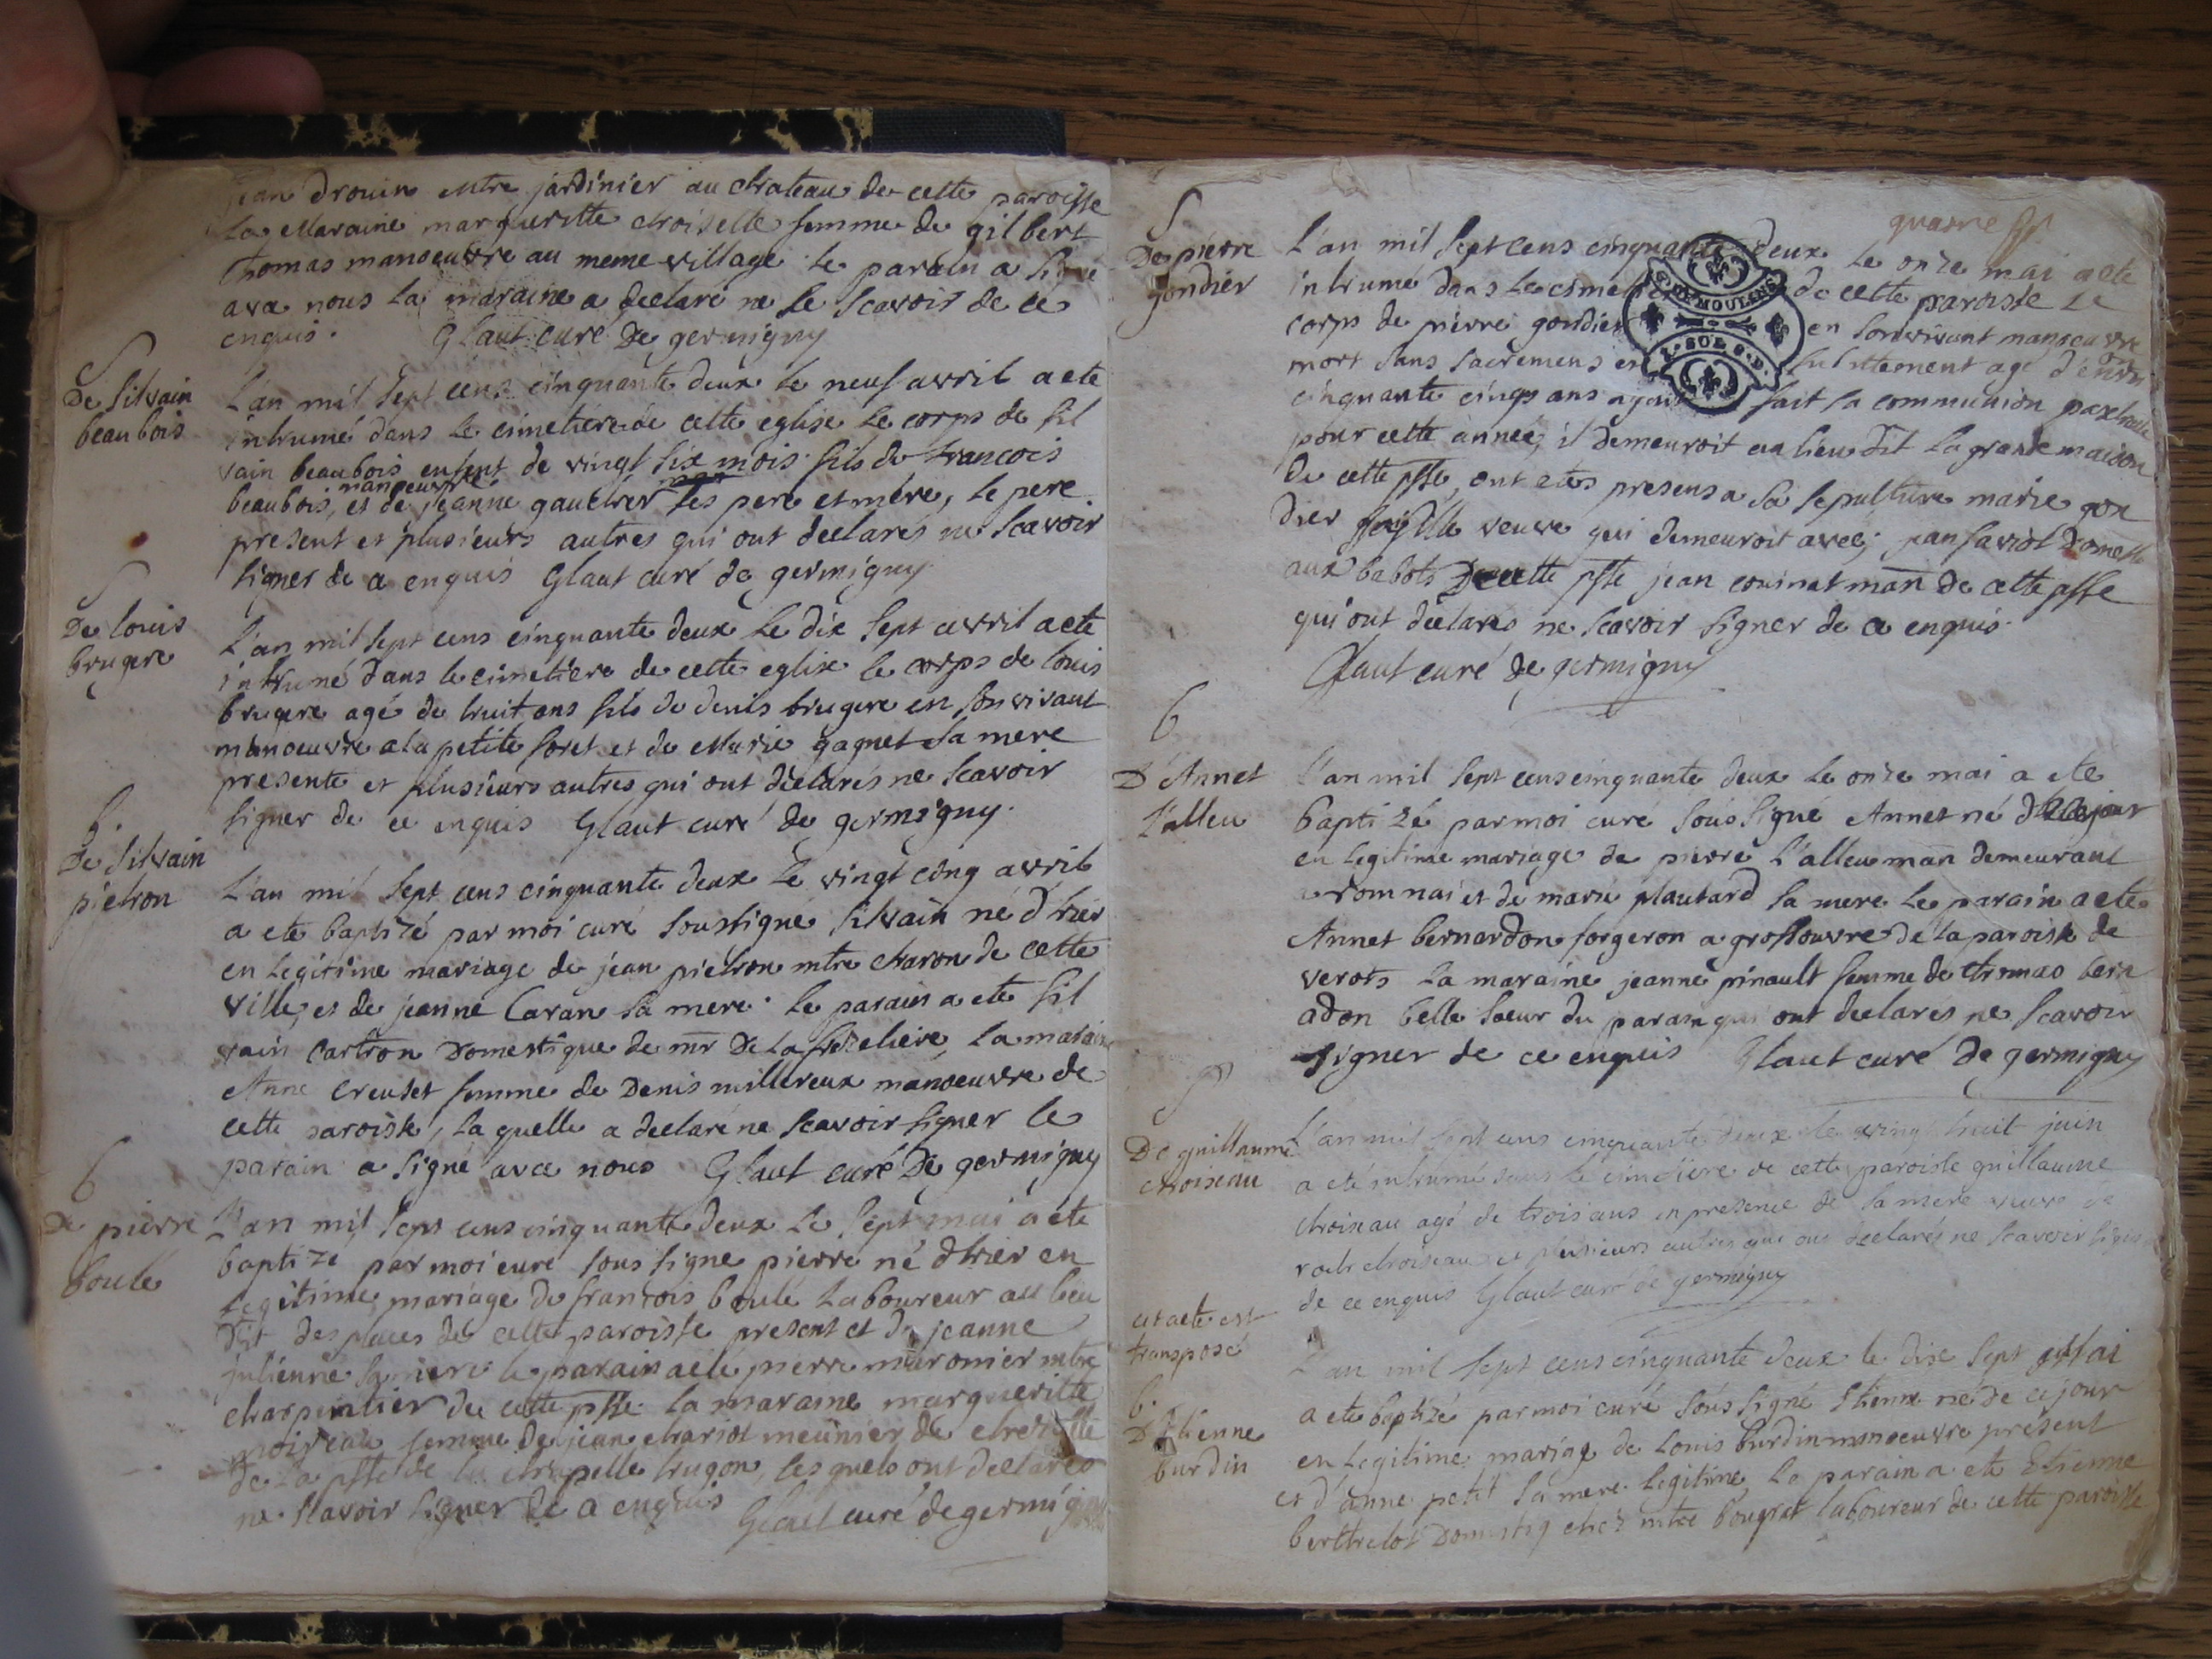 jean drouin mtre jardinier au chateau de cette paroisse
La Maraine margueritte choiselle femme de gilbert
thomas manoeuvre au meme village le parain a signé
avec nous la maraine a declaré ne le scavoir de ce
enquis. Glaut curé De germigny
S
De silvain
beaubois
L'an mil sept cens cinquante deux le neuf avril a eté
inhumé dans le cimetiere de cette eglise le corps de sil
vain beaubois enfent de vingt six mois fils de francois
beaubois, manoeuvre et de jeanne gaucher ses pere et mere, le pere
present et plusieurs autres qui ont declarés ne scavoir
signer de ce enquis Glaut curé de germigny
S
De louis
brugere
L'an mil sept cens cinquante deux le dix sept avril a eté
inhumé dans le cimetiere de cette eglise le corps de louis
brugere agé de huit ans fils de denis brugere en son vivant
manoeuvre a la petite foret et de Marie gagnet sa mere
presente et plusieurs autres qui ont declarés ne scavoir
signer de ce enquis Glaut curé de germigny.
b.
De silvain
pietron
L'an mil sept cens cinquante deux le vingt cinq avril
a eté baptizé par moi curé soussigné silvain né d'hier
en legitime mariage de jean pietron mtre charon de cette
ville, et de jeanne Caran sa mere. le parain a eté sil
vain cartron Domestique de mr De la frezeliere, la maraine
Anne creuset femme de Denis millereux manoeuvre de
cette paroisse, la quelle a declaré ne scavoir signer le
parain a signé avec nous Glaut curé De germigny
b
De pierre
boulé
L'an mil sept cens cinquante deux le sept mai a eté
baptizé par moi curé sous signé pierre né d'hier en
legitime mariage de francois boulé Laboureur au lieu
dit des places de cette paroisse present et de jeanne
julienne sa mere le parain a eté pierre maronier mtre
charpentier de cette psse la maraine margueritte
moireau femme de jean chariot meunier de
de la psse de la chapelle hugon, les quels ont declarés
ne scavoir signer de ce enquis Glaut curé de germigny
quatre
S
De pierre
gondier
L'an mil sept cens cinquante deux le onze mai a eté
inhumé dans le cimetiere de cette paroisse le
corps de pierre gondier en son vivant manoeuvre
mort sans sacremens subittement agé d'environ
cinquante cinq ans ayant fait sa communion paschalle
pour cette année, il demeuroit au lieu dit la grande maison
de cette psse, ont etés presens a sa sepulture marie gon
dier veuve qui demeuroit avec, jean saviot Domestiq
aux babots De cette psse jean couinat man de cette psse
qui ont declarés ne scavoir signer de ce enquis.
Glaut curé de germigny
G. DE MOULINS
SOLS
b
D'Annet
L'alleu
L'an mil sept cens cinquante deux le onze mai a eté
baptizé par moi curé soussigné Annet né de ce jour
en legitime mariage de pierre L'alleu man demeurant
a romnai et de marie plautard sa mere le parain a eté
Annet bernardon forgeron a grossouvre de la paroisse de
verots la maraine jeanne pinault femme de thomas bern
adon belle soeur du parain qui ont declarés ne scavoir
signer de ce enquis Glaut curé de germigny
S
De guillaume
choiseau
L'an mil sept cens cinquante deux le vingt huit juin
a eté inhumé dans le cimetiere de cette paroisse guillaume
choiseau agé de trois ans en presence de sa mere veuve de
roch choiseau et plusieurs autres qui ont declarés ne scavoir signer
de ce enquis Glaut curé de germigny
cet acte est
transposé
b.
D'Etienne
burdin
L'an mil sept cens cinquante deux le dix sept Mai
a eté baptizé par moi curé soussigné Etienne né de ce jour
en legitime mariage de Louis burdin manoeuvre present
et d'anne petit sa mere legitime, le parain a eté Etienne
berthelot Domestiq chez mtre bougrat laboureur de cette paroisse